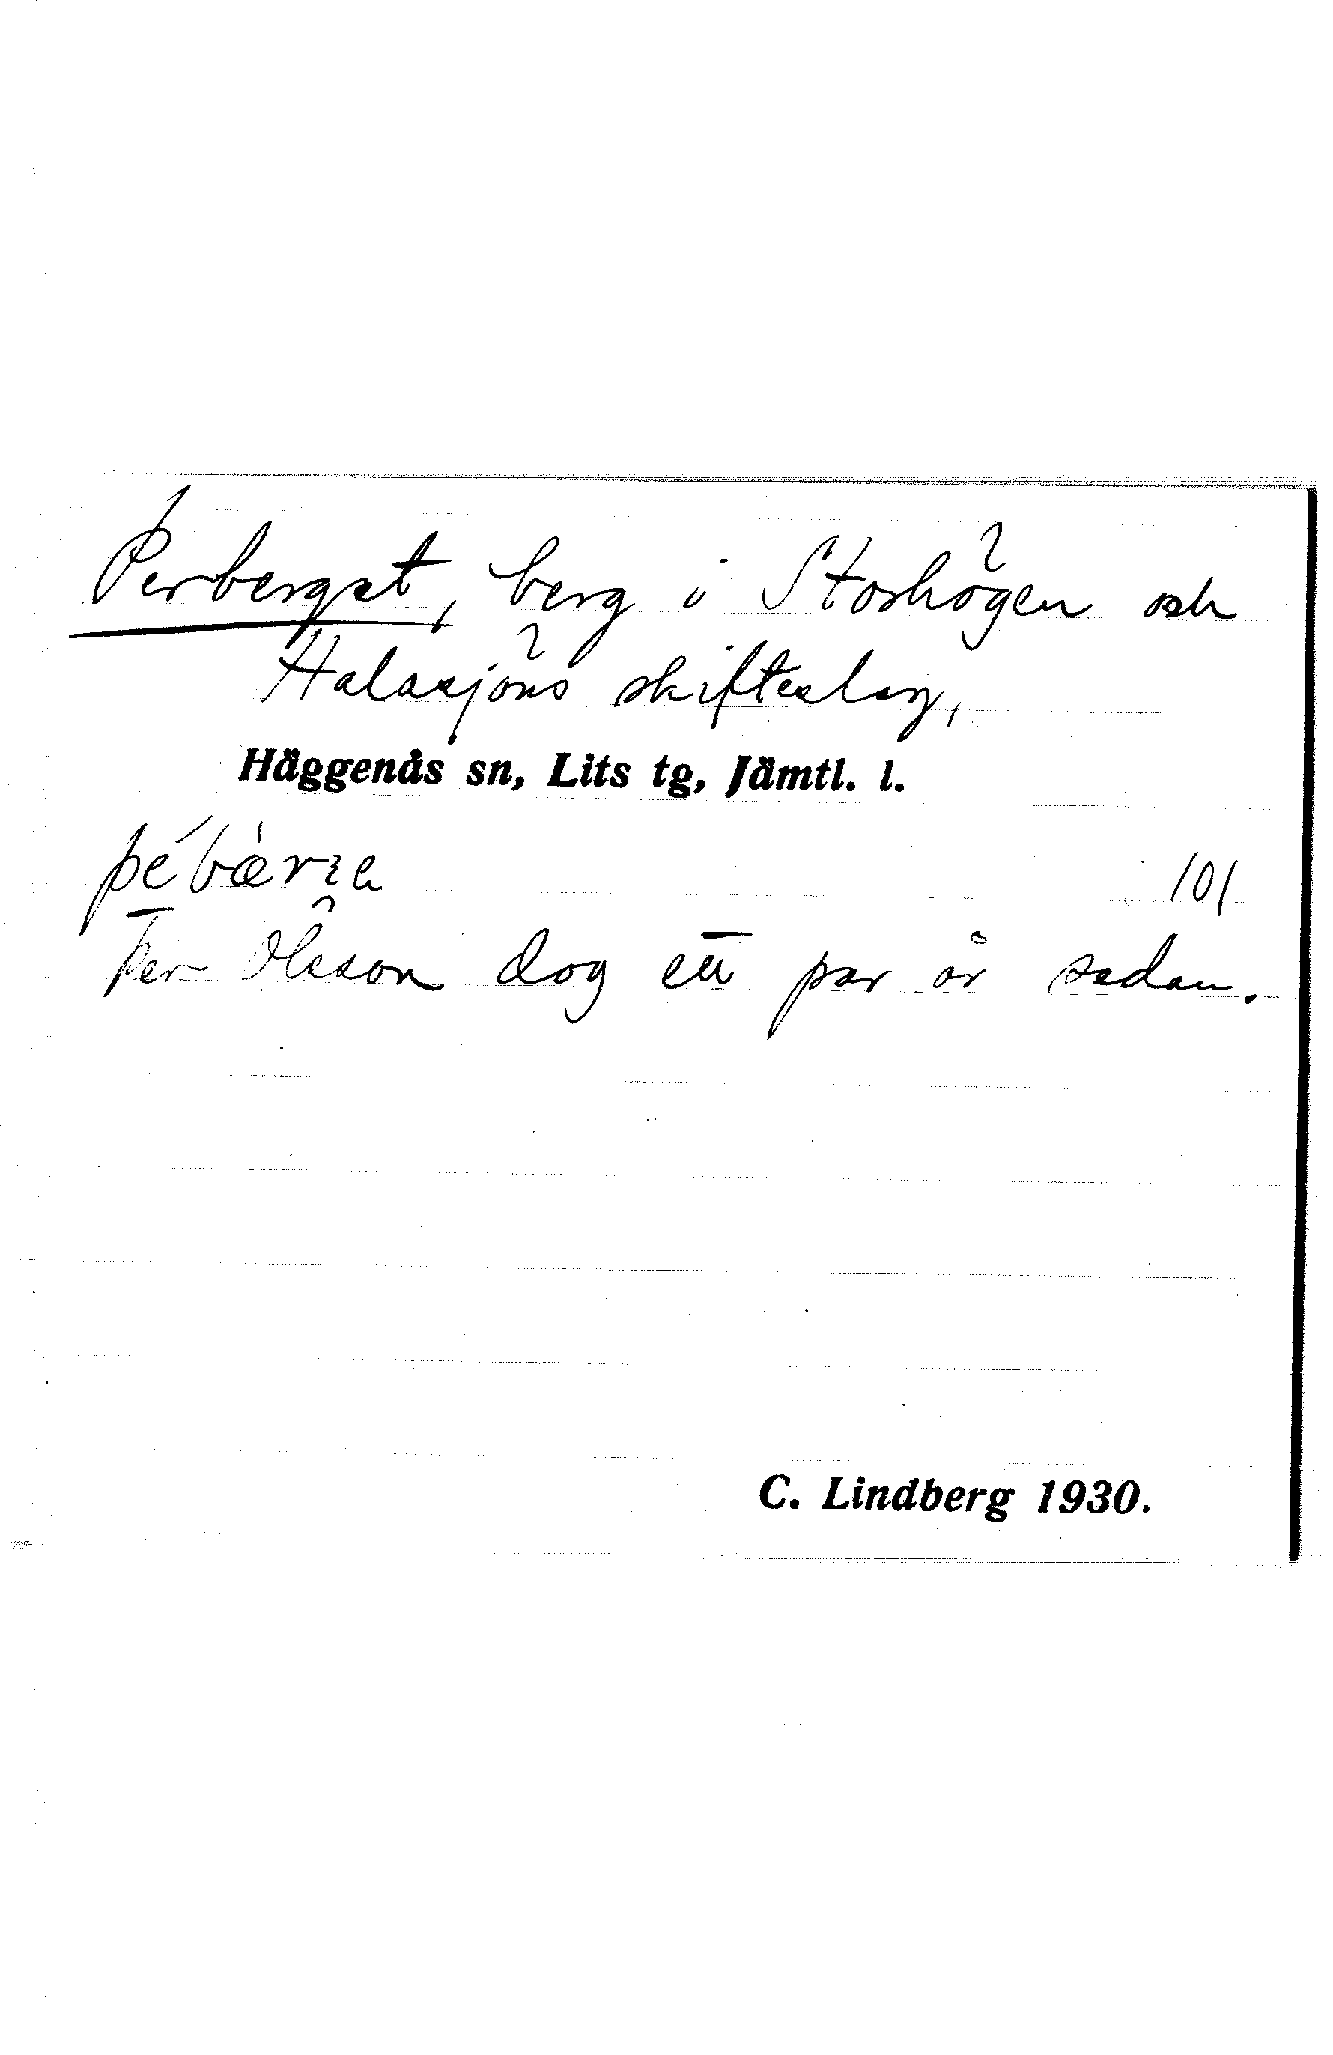 Perberget, berg i Storhögen och
Halasjöns skifteslag,
Häggenås sn, Lits tg, Jämtl. l.
101
Per Olsson dog ett par år sedan.
C. Lindberg 1930.